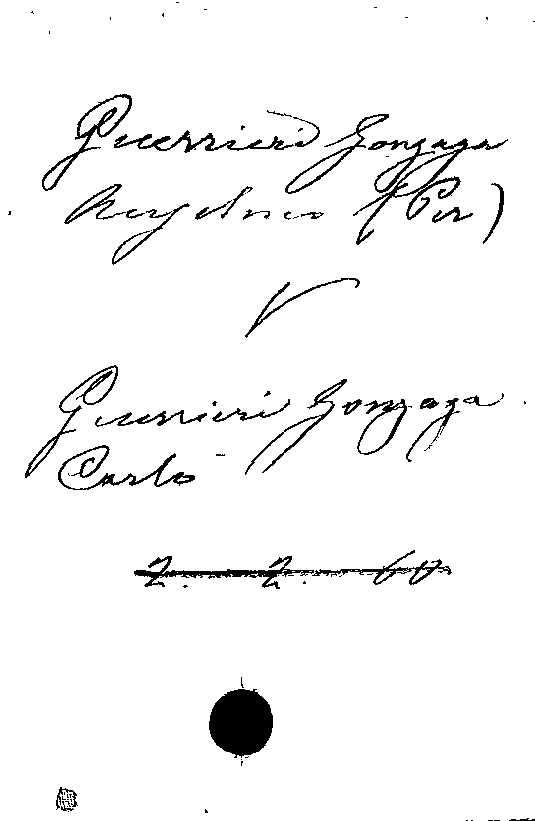 Guerrieri Gonzaga
(Per)
V
Guerrieri Gonzaga
Carlo
2. 2. 60